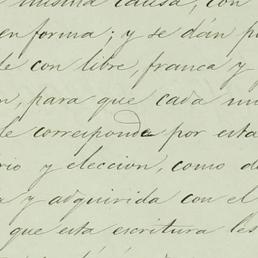 misma causa, con
en forma; y se dán p
de con libre, franca y
n, para que cada un
le corresponde por esta
rio y eleccion, como d
a y adquirida con el
que esta escritura les